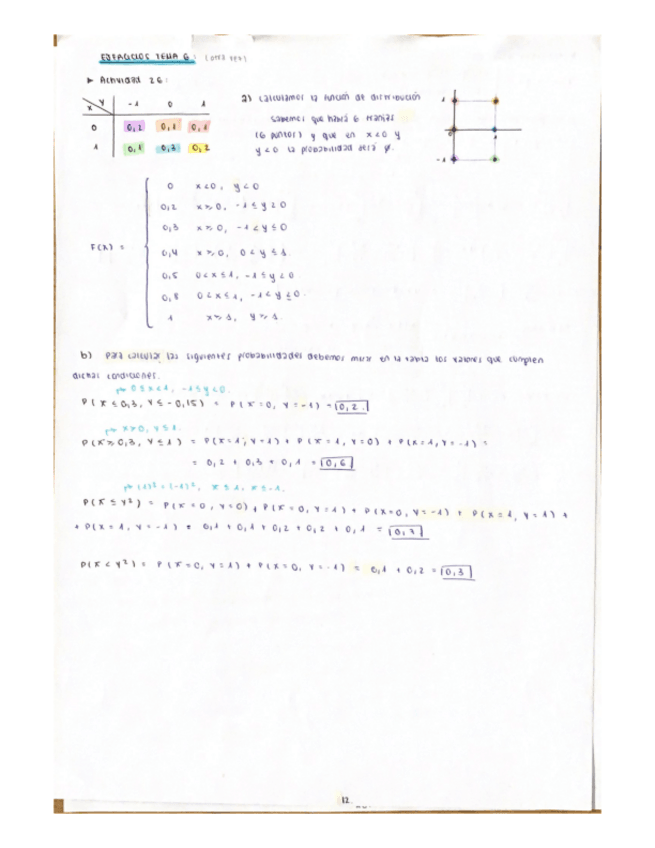 EJERCICIOS TEMA 6: (otra vez)
▸ Actividad 26:
X Y -1 0 1
0 0,2 0,1 0,1
1 0,1 0,3 0,2
a) Calculamos la función de distribución
sabemos que habrá 6
(6 puntos) y que en x<0 y
y<0 la probabilidad será 0.
1
1
-1
F(X) =
0 x<0, y<0
0,2 x≥0, -1≤y≥0
0,3 x≥0, -1<y≤0
0,4 x≥0, 0<y≤1
0,5 0<x≤1, -1≤y<0
0,8 0<x≤1, -1<y≤0
1 x≥1, y≥1
b) Para calcular las siguientes probabilidades debemos mirar en la tabla los valores que cumplen
dichas condiciones.
0≤x<1, -1≤y<0.
P(X≤0,3, Y≤-0,15) = P(X=0, Y=-1) = 0,2.
x>0, y≤1.
P(X≥0,3, Y≤1) = P(X=1, Y=1) + P(X=1, Y=0) + P(X=1, Y=-1) =
= 0,2 + 0,3 + 0,1 = 0,6
(1)² = (-1)², x≤1, x≤-1.
P(X≤Y²) = P(X=0, Y=0) + P(X=0, Y=1) + P(X=0, Y=-1) + P(X=1, Y=1) +
+ P(X=1, Y=-1) = 0,1 + 0,1 + 0,2 + 0,2 + 0,1 = 0,7
P(X<Y²) = P(X=0, Y=1) + P(X=0, Y=-1) = 0,1 + 0,2 = 0,3
12